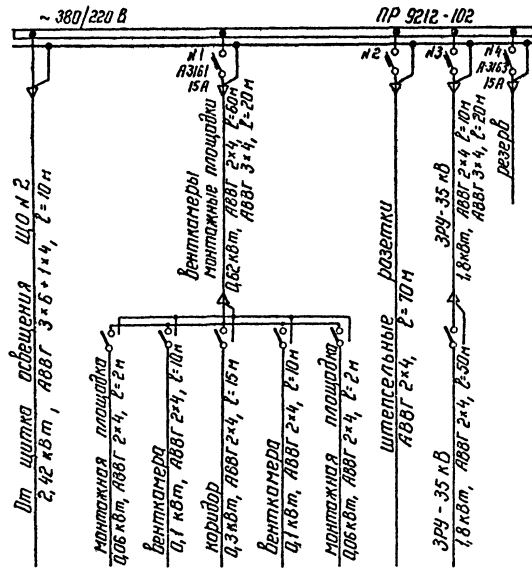 ~ 380/220 В
ПР 9212-102
От щитка освещения ЩО N2
2,42 кВт, АВВГ 3×6+1×4, ℓ=10м
N1
А3161
15А
Венткамеры
монтажные площадки
0,62 кВт, АВВГ 2×4, ℓ=60м
АВВГ 3×4, ℓ=20м
монтажная площадка
0,06 кВт, АВВГ 2×4, ℓ=2м
Венткамера
0,1 кВт, АВВГ 2×4, ℓ=10м
коридор
0,3 кВт, АВВГ 2×4, ℓ=15м
Венткамера
0,1 кВт, АВВГ 2×4, ℓ=10м
монтажная площадка
0,06 кВт, АВВГ 2×4, ℓ=2м
N2
штепсельные разетки
АВВГ 2×4, ℓ=70м
N3
ЗРУ-35 кВ
1,8 кВт, АВВГ 2×4 ℓ=10м
АВВГ 3×4, ℓ=20м
ЗРУ-35 кВ
1,8 кВт, АВВГ 2×4, ℓ=50м
N4
А3163
15А
резерв